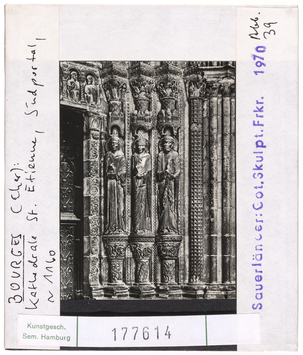 BOURGES (Cher):
Kathedrale St. Étienne, Südportal,
~ 1160
Sauerländer: Got. Skulpt. Frkr. 1970
Abb.
39
Kunstgesch.
Sem. Hamburg
177614